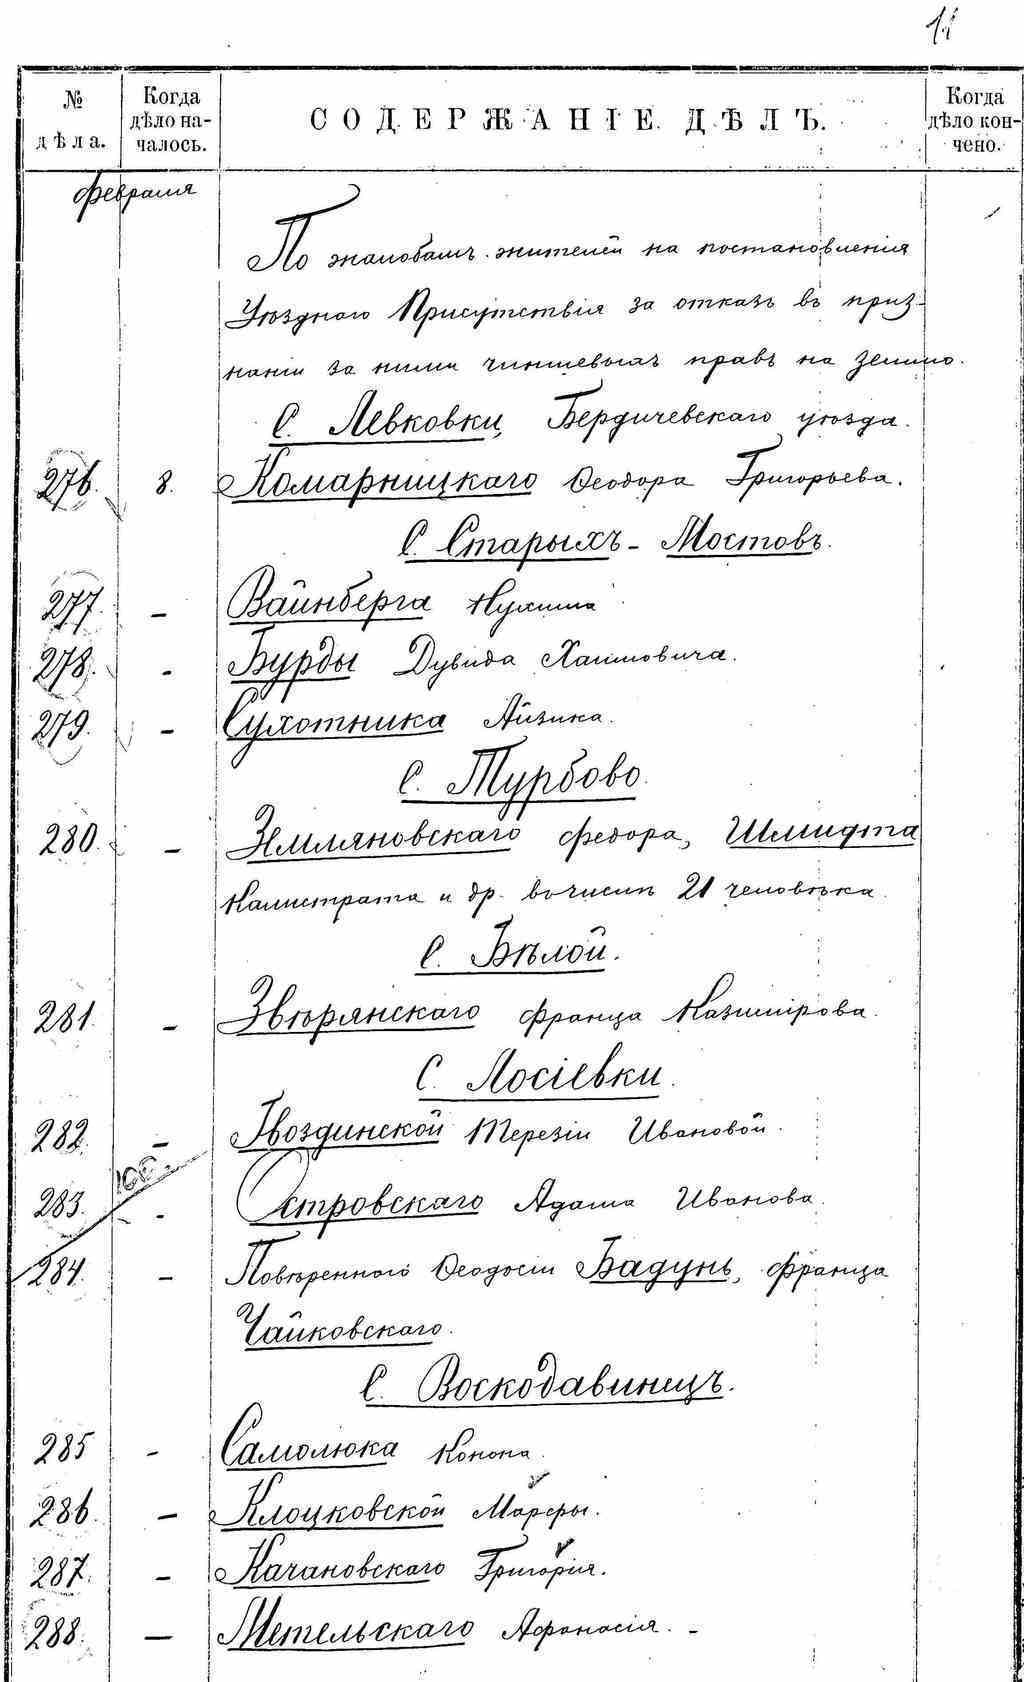 № дѣла.
Когда дѣло началось.
СОДЕРЖАНІЕ ДѢЛЪ.
Когда дѣло кончено.
Февраля
По жалобамъ жителей на постановленія
Уѣзднаго Присутствія за отказъ въ приз-
наніи за ними чиншевыхъ правъ на землю.
С. Левковки, Бердичевскаго уѣзда.
276. 8. Комарницкаго Ѳеодора Григорьева.
С. Старыхъ - Мостовъ.
277. - Вайнберга Нухима
278. - Бурды Дувида Хаимовича.
279. - Сухотника Айзика.
С. Турбово.
280. - Земляновскаго Федора, Шмидта
Калистрата и др. въ числѣ 21 человѣка.
С. Бѣлой.
281. - Звѣрянскаго Франца Казимірова.
С. Лосіевки.
282. - Гвоздинской Терезіи Ивановой.
100
283. - Островскаго Адама Иванова.
284. - Повѣреннаго Ѳеодосіи Бадунь, Франца
Чайковскаго.
С. Воскодавинецъ.
285 - Самолюка Конона.
286. - Клоцковской Марфы.
287. - Качановскаго Григорія.
288. - Метельскаго Афанасія. -